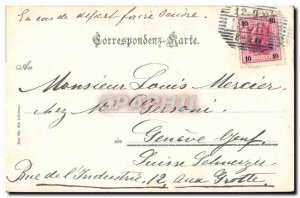 En cas de départ faire suivre.
Correspondenz-Karte.
10 10
10 10
An
Monsieur Louis Mercier
chez Mr Gersoni
in Genève Genf
Suisse Schweiz
Rue de l'Industrie, 12, aux Grottes
Nur für die Adresse.